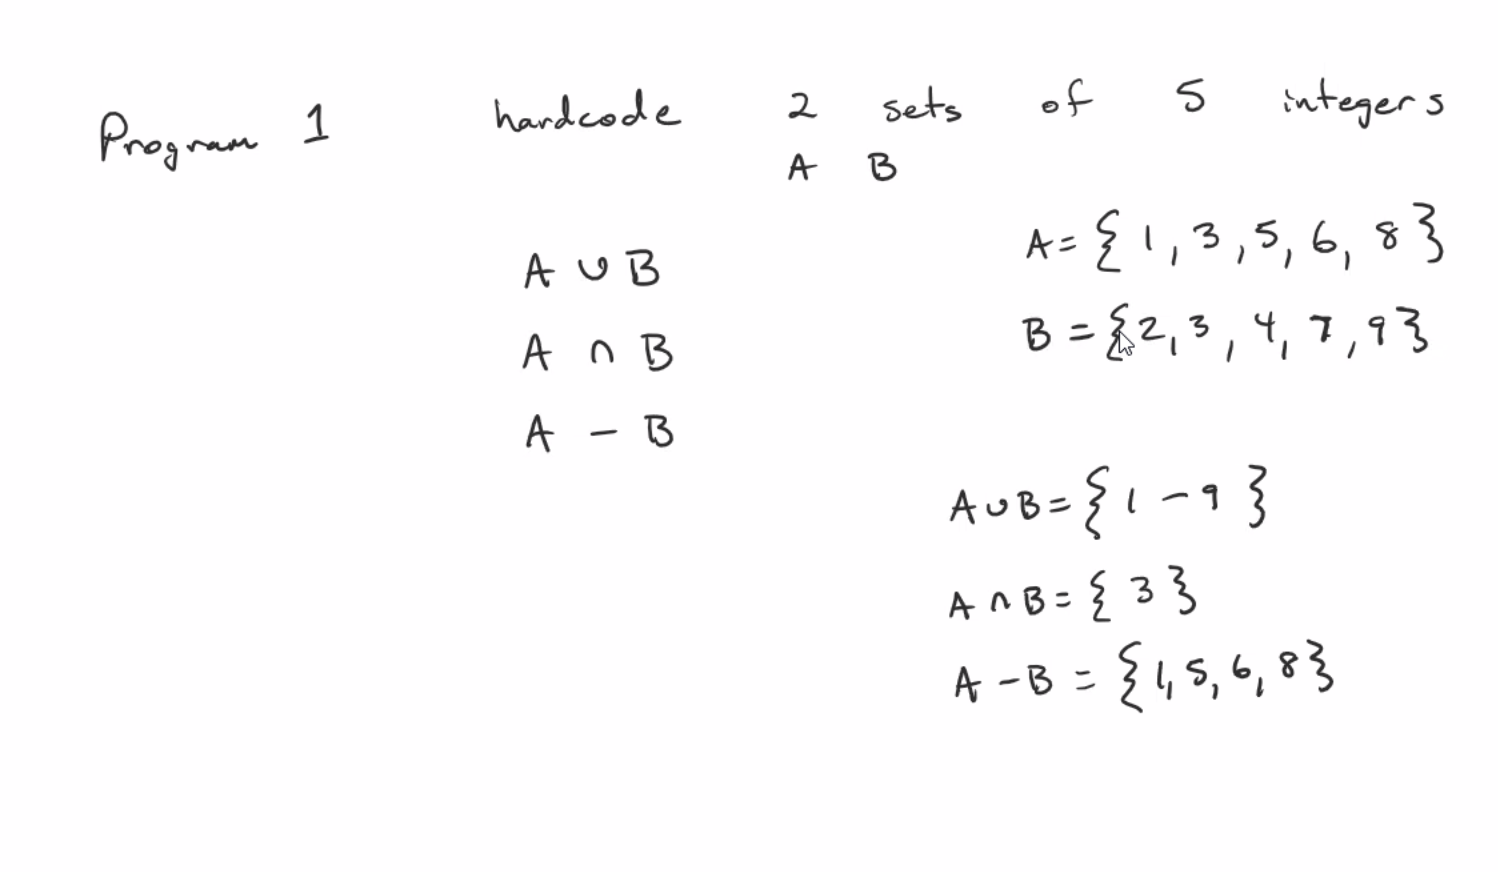 Program 1 hardcode 2 sets of 5 integers
A B
A = { 1, 3, 5, 6, 8 }
A ∪ B
B = { 2, 3, 4, 7, 9 }
A ∩ B
A - B
A ∪ B = { 1 - 9 }
A ∩ B = { 3 }
A - B = { 1, 5, 6, 8 }